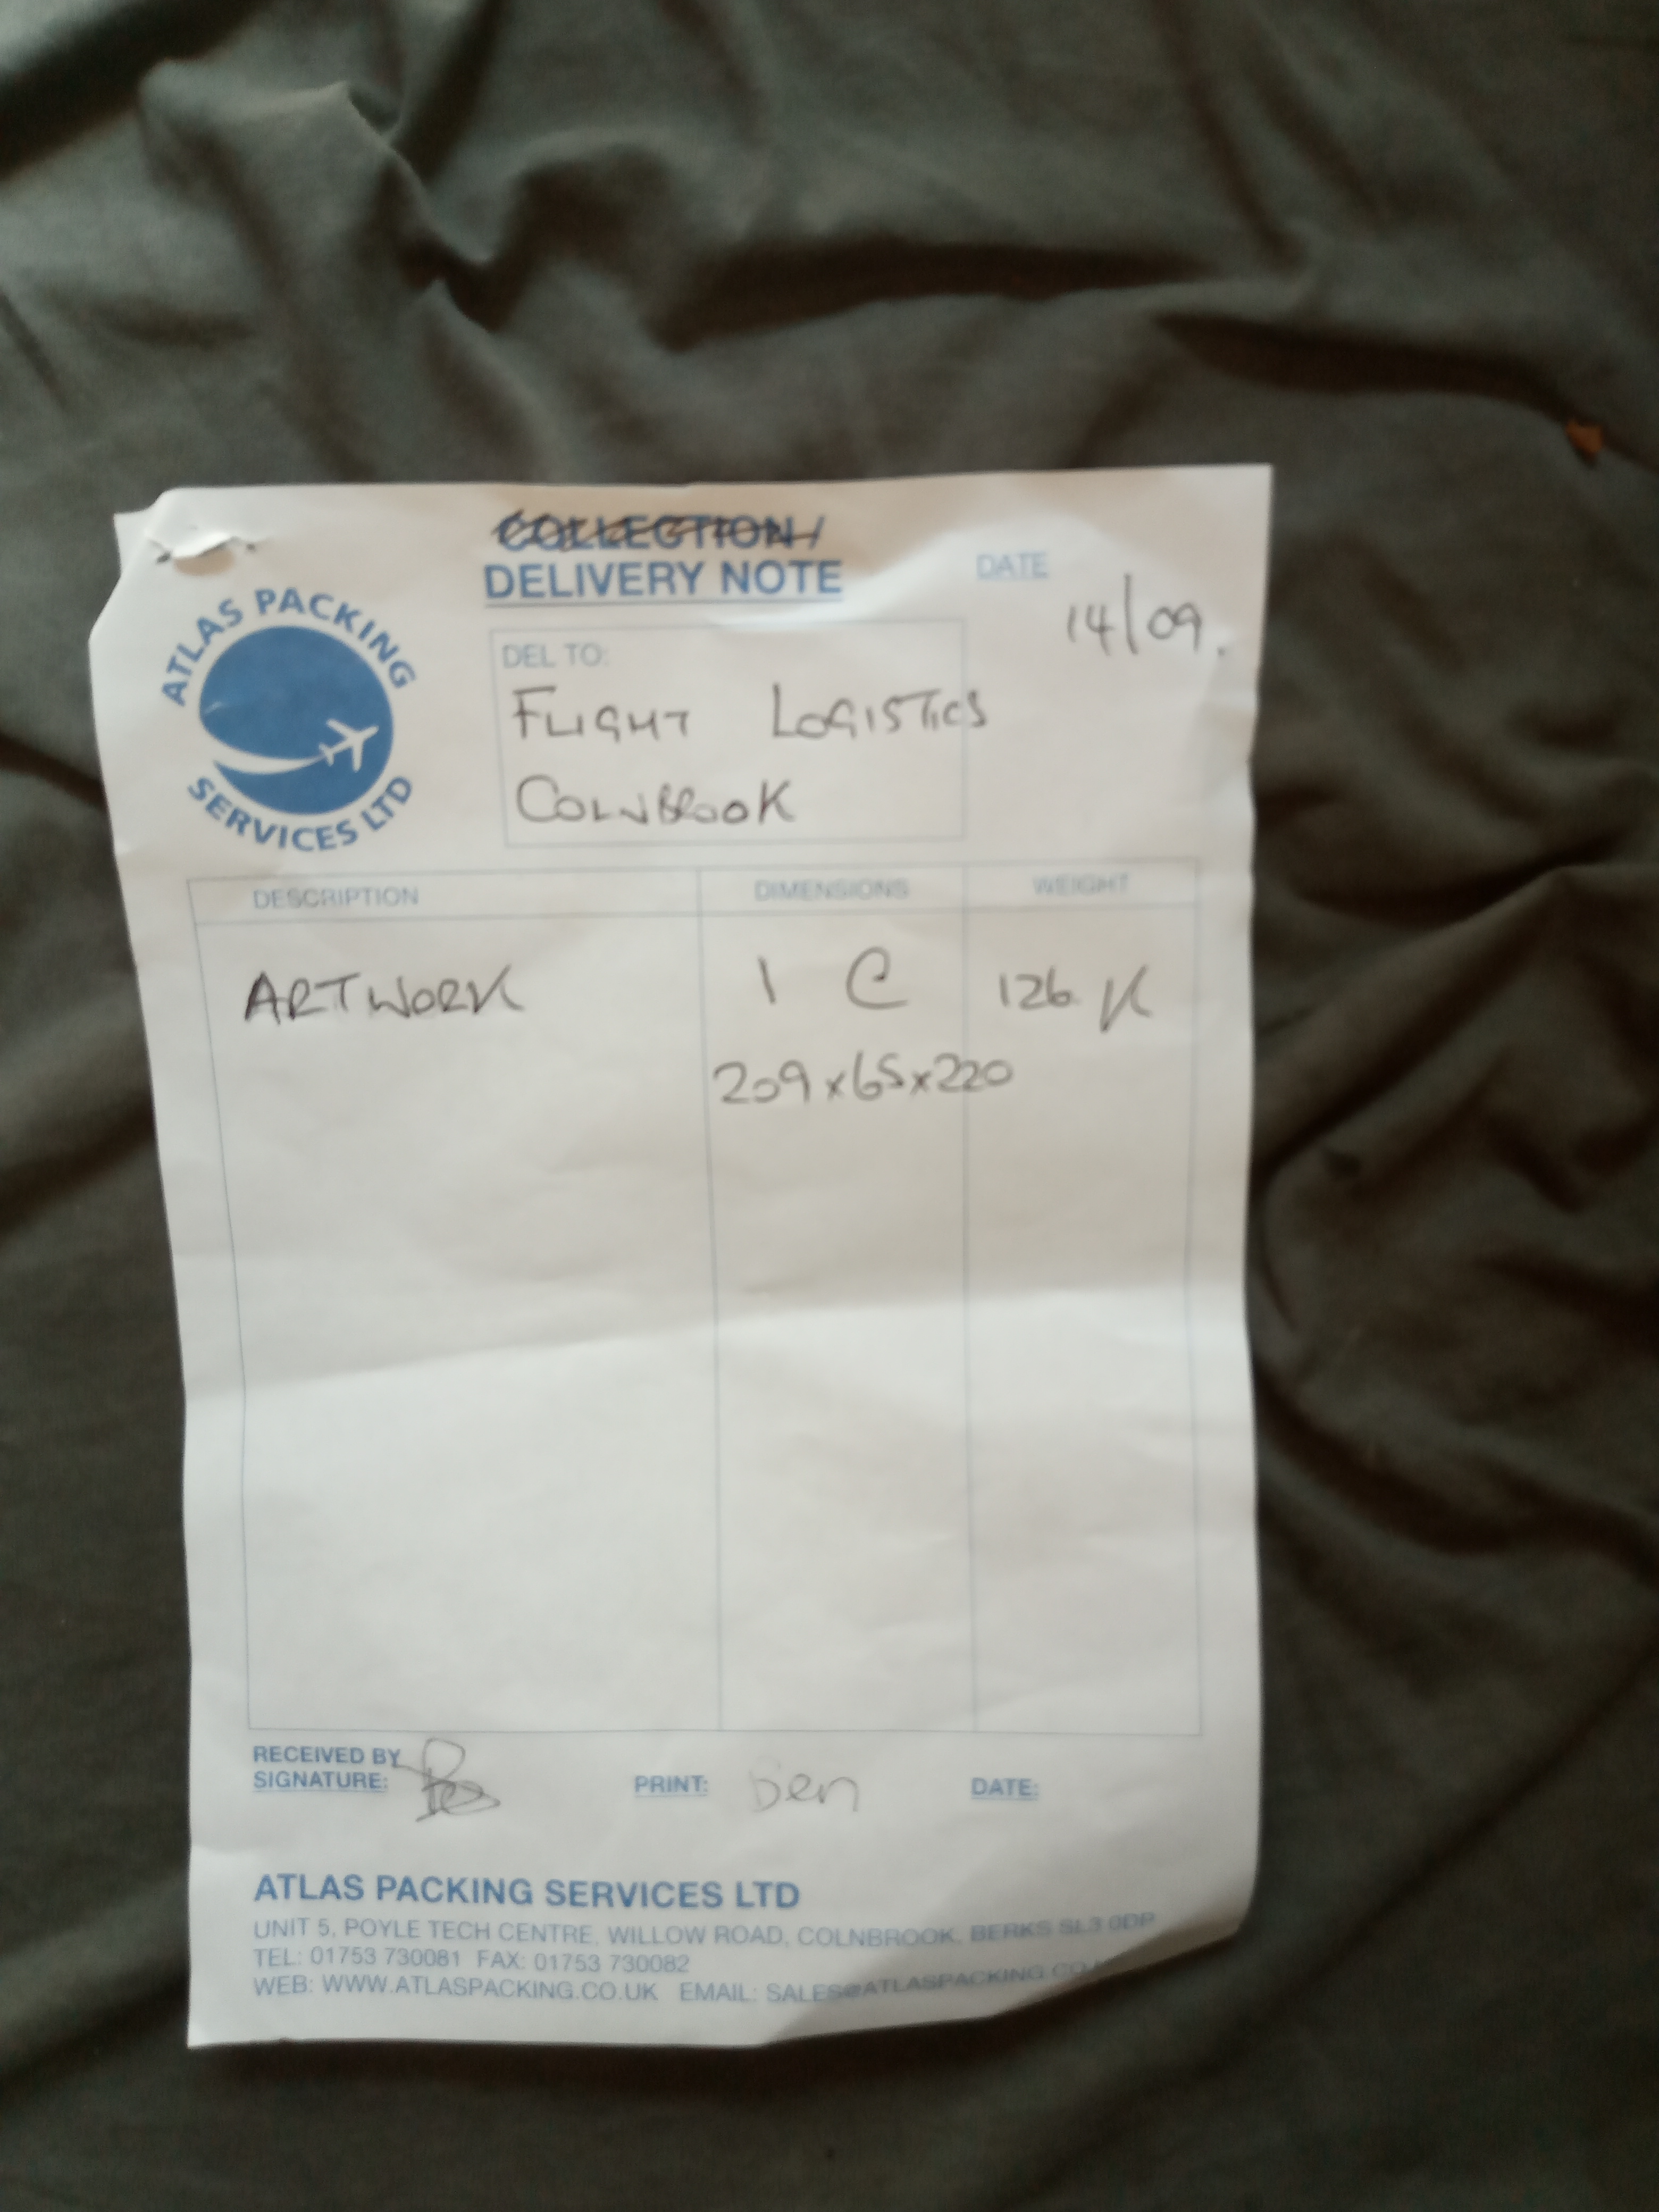 COLLECTION/
DELIVERY NOTE
DATE
14/09.
ATLAS PACKING
SERVICES LTD
DEL TO:
FLIGHT LOGISTICS
COLNBROOK
DESCRIPTION DIMENSIONS WEIGHT
ARTWORK 1 C 126 K
209x65x220
RECEIVED BY
SIGNATURE: PRINT: Ben DATE:
ATLAS PACKING SERVICES LTD
UNIT 5, POYLE TECH CENTRE, WILLOW ROAD, COLNBROOK, BERKS SL3 0DP
TEL: 01753 730081 FAX: 01753 730082
WEB: WWW.ATLASPACKING.CO.UK EMAIL: SALES@ATLASPACKING.CO